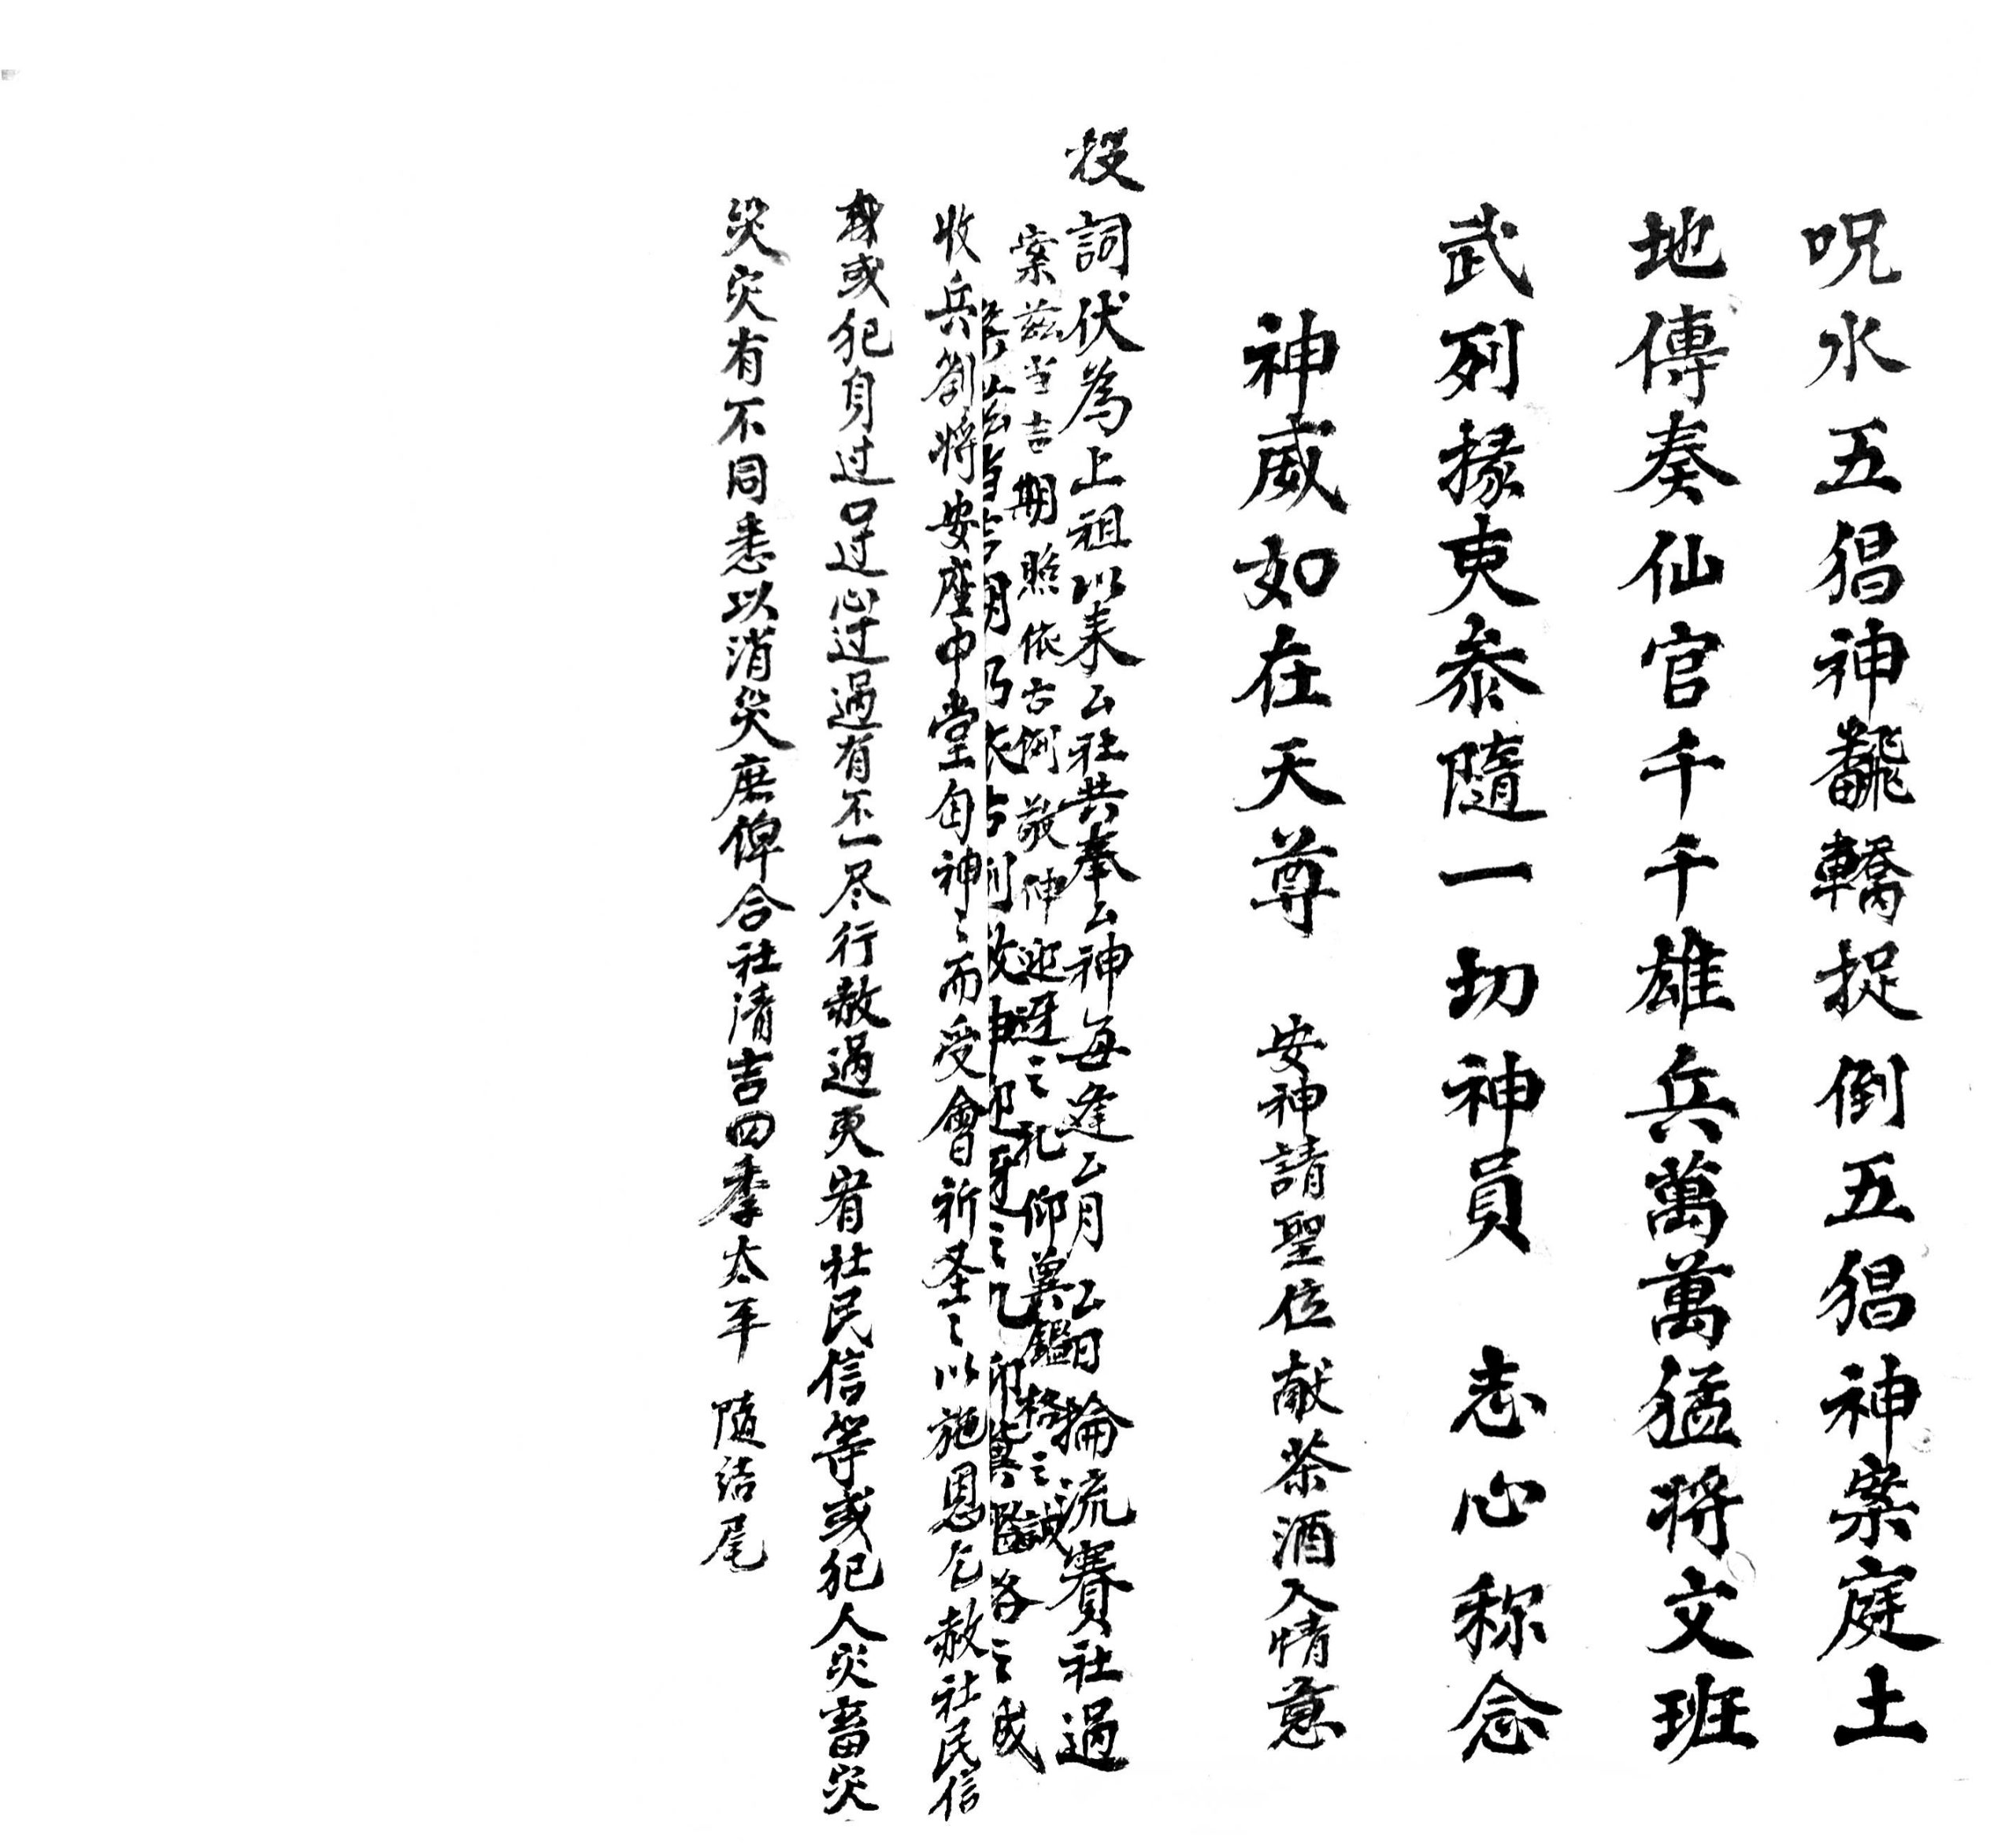 呪水五猖神飜轎捉倒五猖神案庭土
地傳奏仙官千千雄兵萬萬猛将文班
武列掾吏叅隨一切神員 志心称念
神威如在天尊 安神請聖位献茶酒入情意
投詞伏為上祖以来厶社共奉厶神每逢厶月厶日掄流賽社過
案兹当吉期照依古例敬伸迎迓之礼仰兾鑑格之誠
收兵劄将安座中堂自神〻而受會祈圣〻以施恩乞赦社民信
或犯身过口过心过過有不一尽行赦過更宥社民信等或犯人灾畜灾
災灾有不同悉以消災庶俾合社清吉四季太平 隨结尾